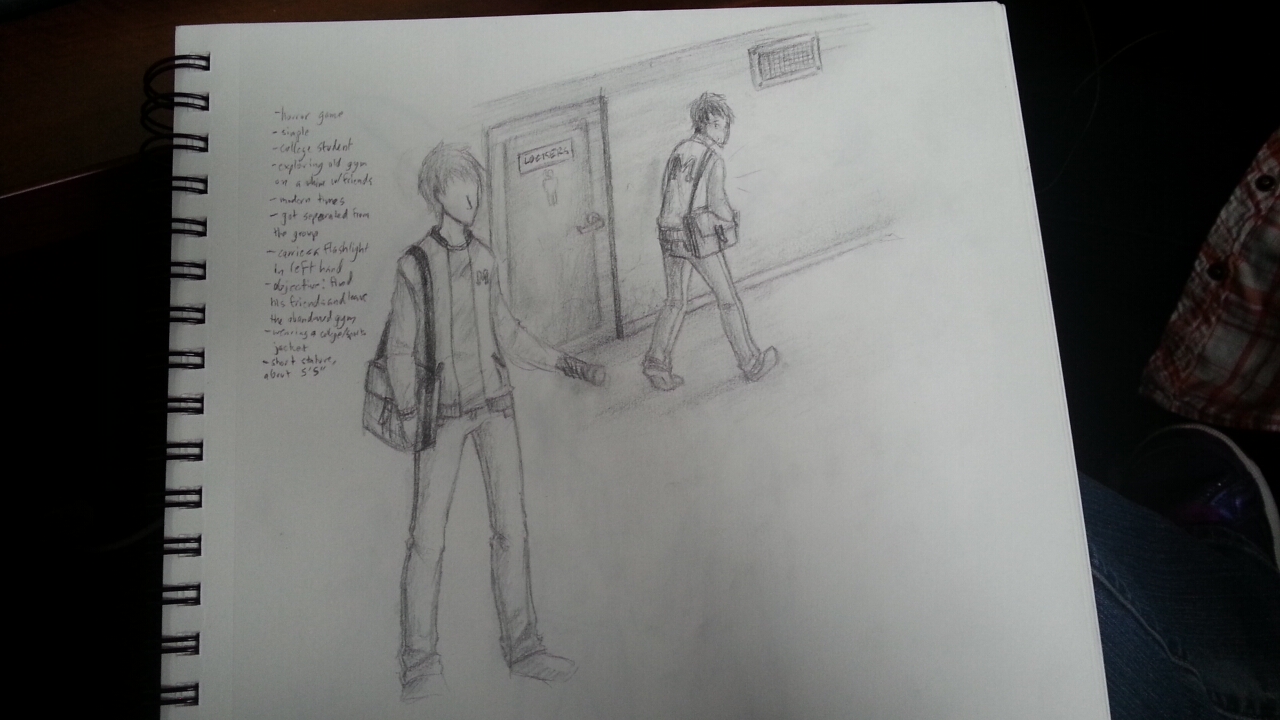 - horror game
- simple
- college student
- exploring old gym
on a dare w/friends
- modern times
- got separated from
the group
- carries a flashlight
in left hand
- objective: find
his friends and leave
the abandoned gym
- wearing a college/sports
jacket
- short stature,
about 5'5"
LOCKERS
M
M